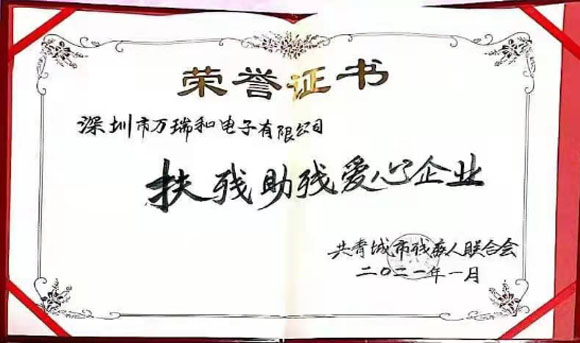 荣誉证书
深圳市万瑞和电子有限公司
扶残助残爱心企业
共青城市残疾人联合会
二〇二一年一月